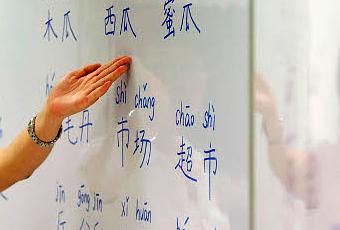 木瓜 西瓜 蜜瓜
shì chǎng chāo shì
毛丹 市场 超市
jīn gōng jīn xǐ huān